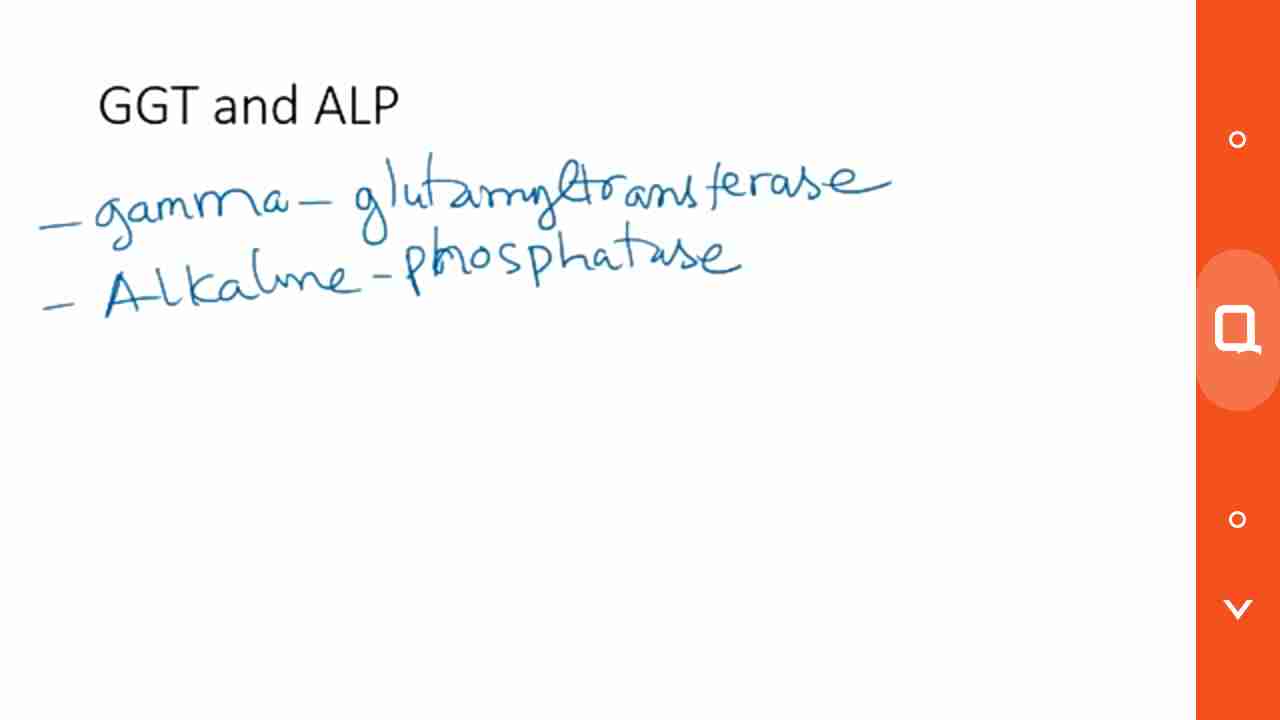 GGT and ALP
- gamma - glutamyltransferase
- Alkaline - phosphatase